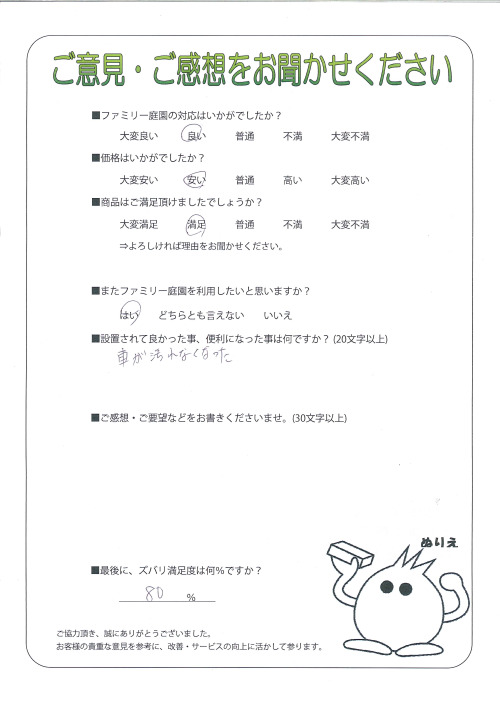 ご意見・ご感想をお聞かせください
■ファミリー庭園の対応はいかがでしたか？
大変良い 良い 普通 不満 大変不満
■価格はいかがでしたか？
大変安い 安い 普通 高い 大変高い
■商品はご満足頂けましたでしょうか？
大変満足 満足 普通 不満 大変不満
⇒よろしければ理由をお聞かせください。
■またファミリー庭園を利用したいと思いますか？
はい どちらとも言えない いいえ
■設置されて良かった事、便利になった事は何ですか？ (20文字以上)
車が汚れなくなった
■ご感想・ご要望などをお書きくださいませ。(30文字以上)
ぬりえ
■最後に、ズバリ満足度は何%ですか？
80 %
ご協力頂き、誠にありがとうございました。
お客様の貴重な意見を参考に、改善・サービスの向上に活かして参ります。